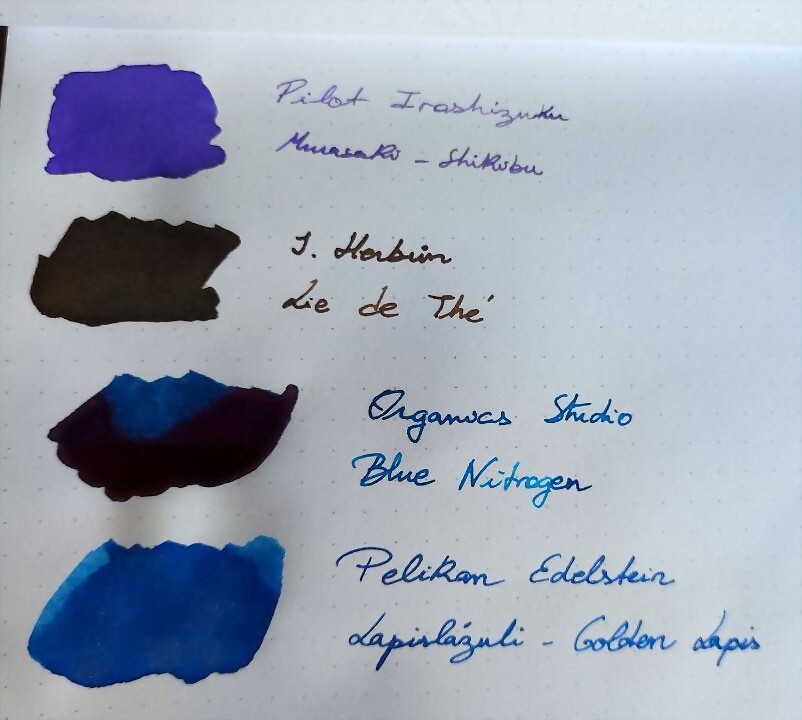 Pilot Iroshizuku
Murasaki - Shikibu
J. Herbin
Lie de Thé
Organics Studio
Blue Nitrogen
Pelikan Edelstein
Lapislázuli - Golden Lapis